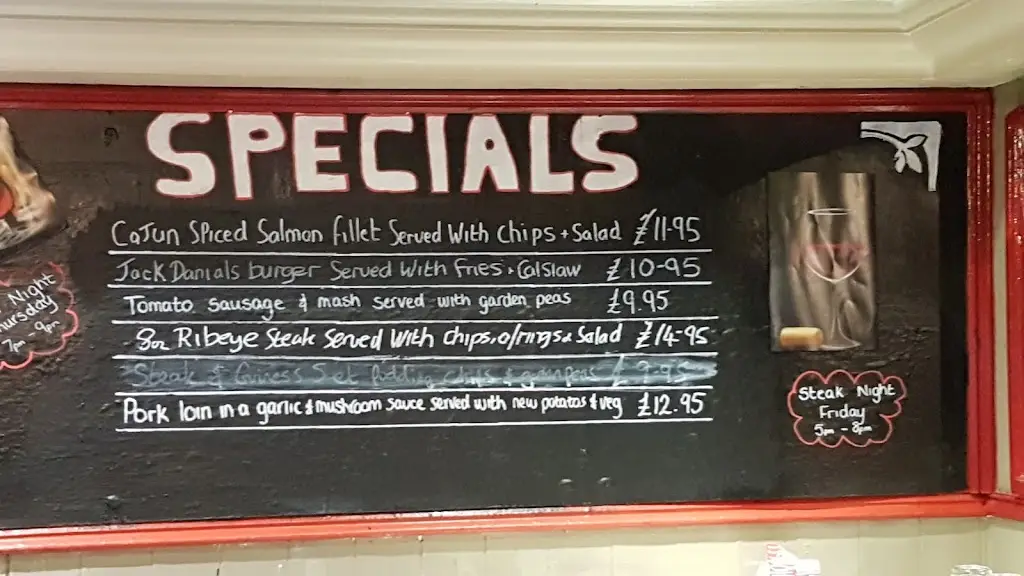 SPECIALS
Cajun Spiced Salmon fillet Served With Chips + Salad £11-95
Jack Danials burger Served With fries + Calslaw £10-95
Tomato sausage & mash served with garden peas £9.95
8oz Ribeye Steak Served With chips, o/rings + Salad £14-95
Steak & Guiness Suet Pudding chips & garden peas £9-95
Pork loin in a garlic & mushroom sauce served with new potatos & veg £12.95
Night
Thursday
7pm 9pm
Steak Night
Friday
5pm - 8pm